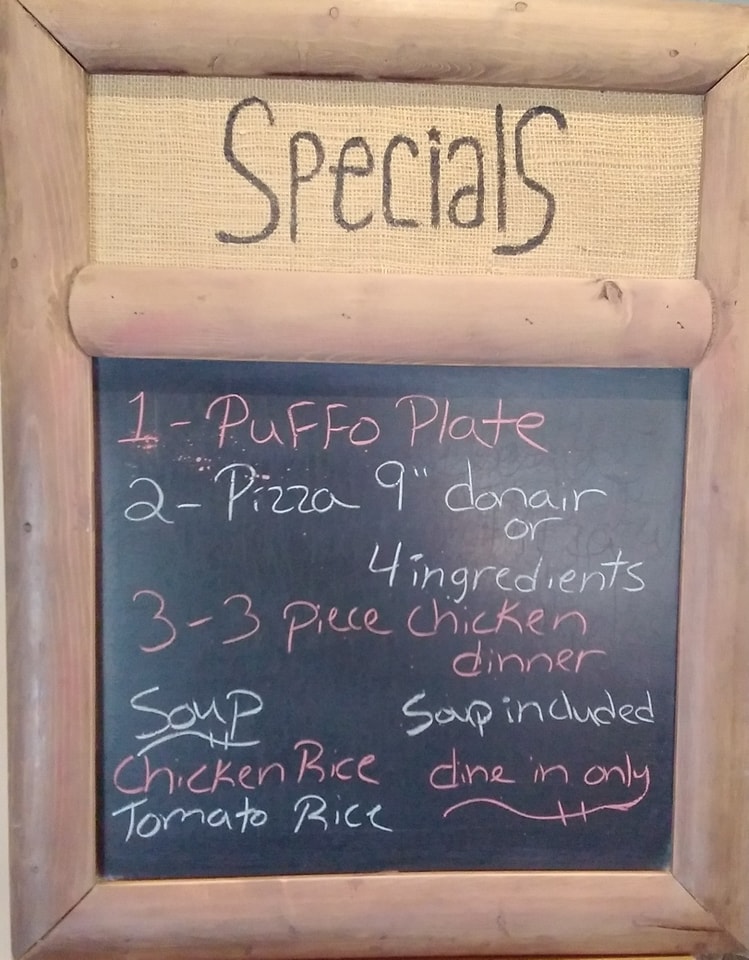 Specials
1 - Puffo Plate
2 - Pizza 9" donair
or
4 ingredients
3 - 3 piece chicken
dinner
Soup
Soup included
Chicken Rice
dine in only
Tomato Rice